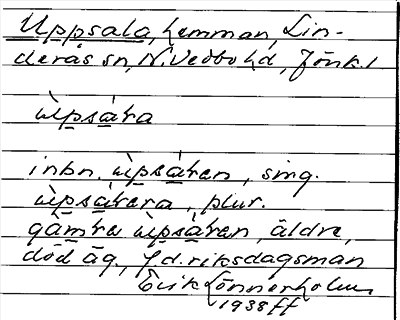 Uppsala, hemman, Lin-
derås sn, N. Vedbo hd, Jönk. l
ẁpsára
inbn. ẁpsáran, sing.
ẁpsárara, plur.
gamra ẁpsáran, äldre,
död äg., f.d. riksdagsman
Erik Lönnerholm
1938 ff